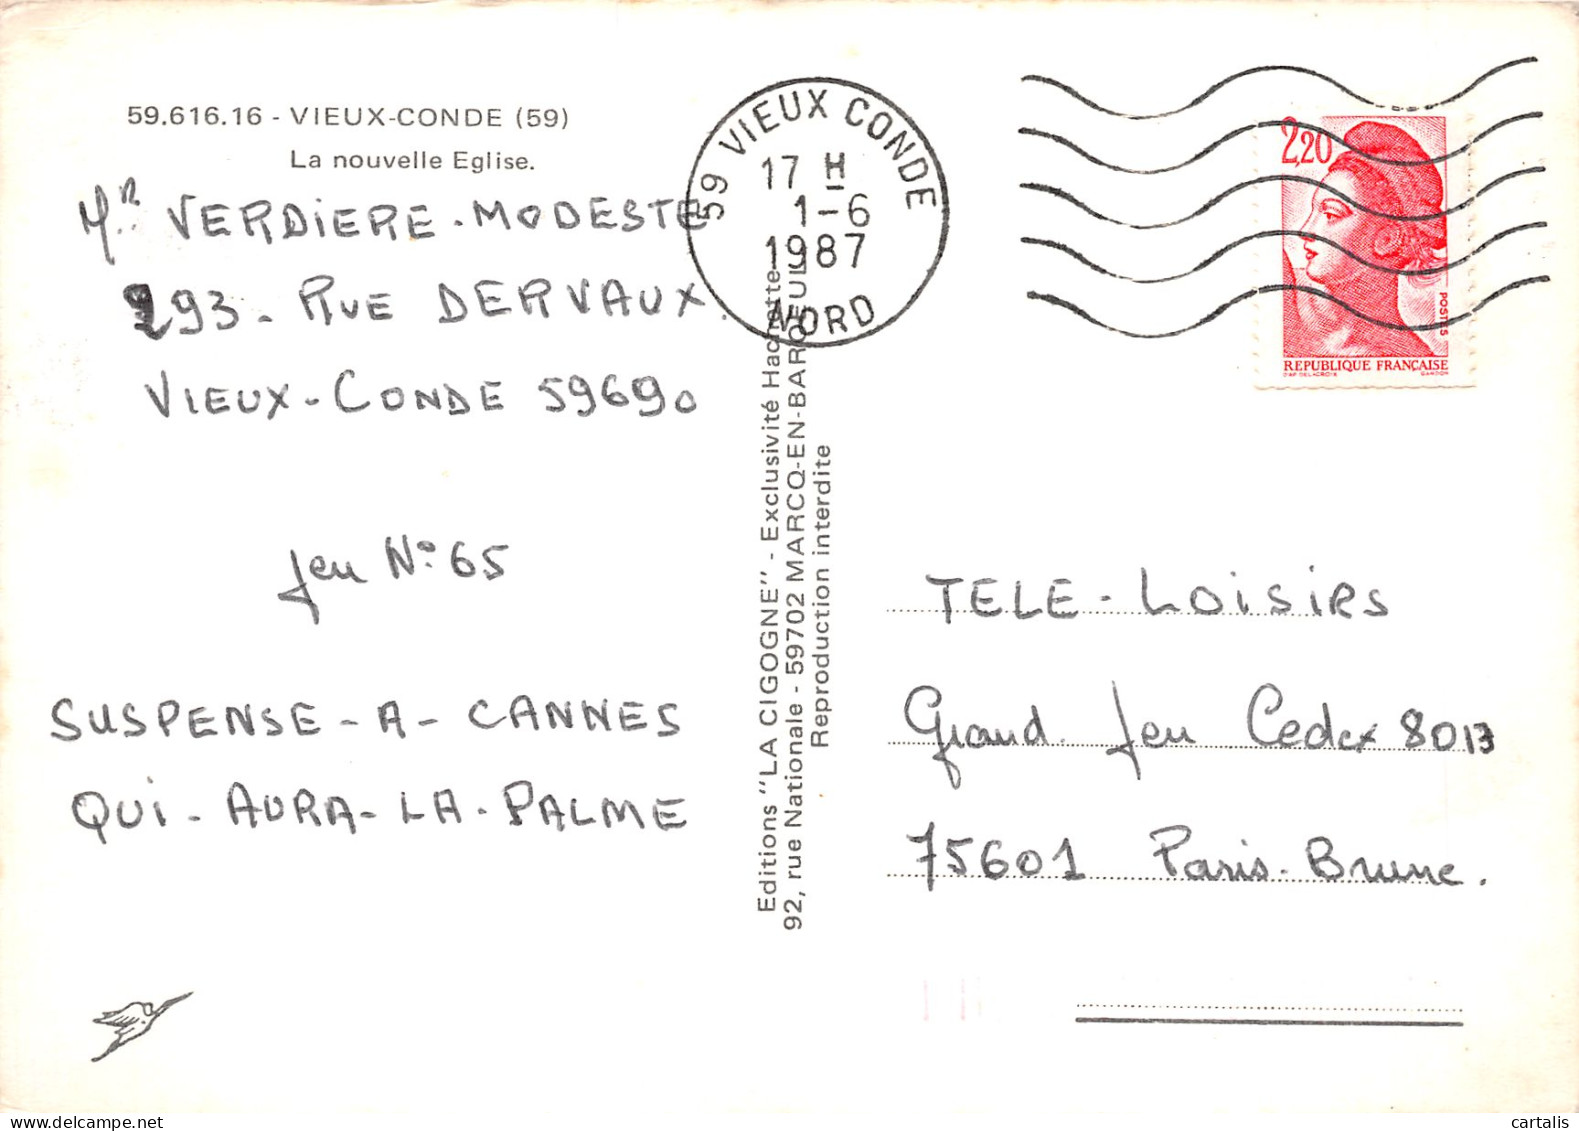 59.616.16 - VIEUX-CONDE (59)
La nouvelle Eglise.
Mr. VERDIERE-MODESTE
293-RUE DERVAUX.
VIEUX-CONDE 59690
Jeu N° 65
SUSPENSE-A-CANNES
QUI-AURA-LA-PALME
Editions "LA CIGOGNE" - Exclusivité Hachette
92, rue Nationale - 59702 MARCQ-EN-BAROEUL
Reproduction interdite
59 VIEUX CONDE
17 H
1-6
1987
NORD
2,20
POSTES
REPUBLIQUE FRANÇAISE
D'AP. DELACROIX GANDON
TELE-LOISIRS
Grand Jeu Cedex 8013
75601 Paris-Brune.
cartalis